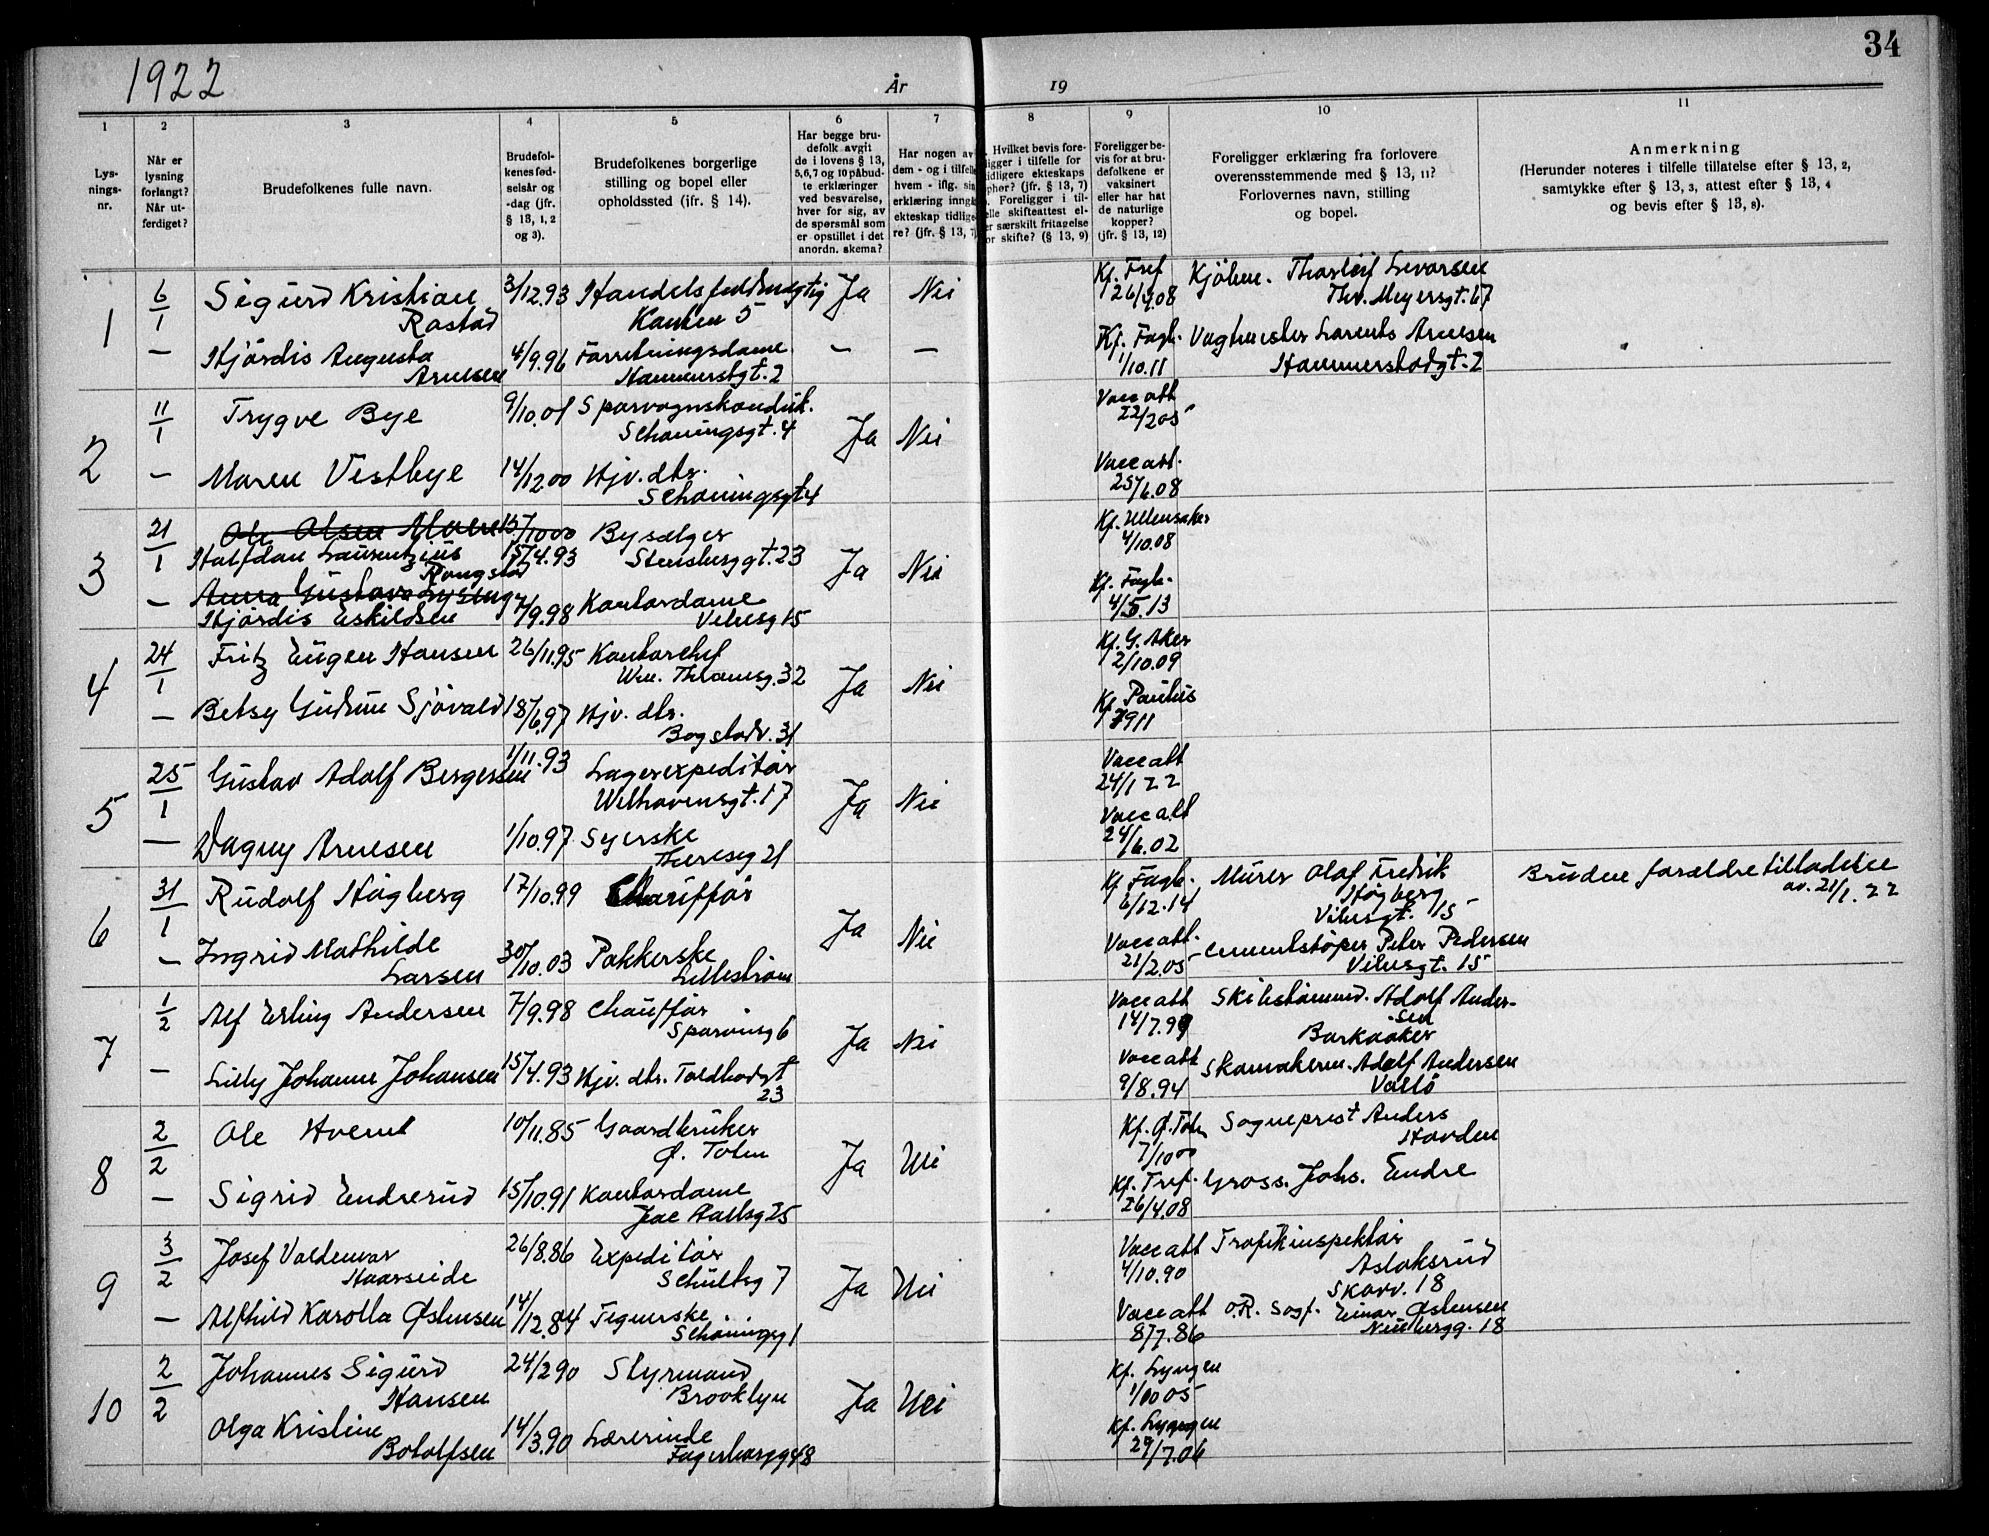 34
1922
År
19
1
2
3
4
5
6
7
8
9
10
11
Lys-
nings-
nr.
Når er
lysning
forlangt?
Når ut-
ferdiget?
Brudefolkenes fulle navn.
Brudefol-
kenes fød-
selsår og
-dag (jfr.
§ 13, 1, 2
og 3).
Brudefolkenes borgerlige
stilling og bopel eller
opholdssted (jfr. § 14).
Har begge bru-
defolk avgit
de i lovens § 13,
5, 6, 7 og 10 påbud-
te erklæringer
ved besvarelse,
hver for sig, av
de spørsmål som
er opstillet i det
anordn. skema?
Har nogen av
dem - og i tilfelle
hvem - iflg. sin
erklæring inngå
ekteskap tidlige
re? (jfr. § 13, 7)
Hvilket bevis fore-
ligger i tilfelle for
tidligere ekteskaps
ophør? (jfr. § 13, 7)
Foreligger i til-
felle skifteattest el-
er særskilt fritagelse
or skifte? (§ 13, 9)
Foreligger be-
vis for at bru-
defolkene er
vaksinert
eller har hat
de naturlige
kopper?
(jfr. § 13, 12)
Foreligger erklæring fra forlovere
overensstemmende med § 13, 11?
Forlovernes navn, stilling
og bopel.
Anmerkning
(Herunder noteres i tilfelle tillatelse efter § 13, 2,
samtykke efter § 13, 3, attest efter § 13, 4
og bevis efter § 13, 8).
1
6/1
Sigurd Kristian
Rastad
3/12.93
Handelsfuldmægtig
5
Ja
Nei
Kf. Tref
26/4.08
Kjöbm. Thorleif
Thv. Meyersgt. 67
—
Hjördis Augusta
Arnesen
4/9.96
Forretningsdame
Hammerstgt. 2
—
—
Kf. Fagb.
1/10.11
Vagtmester Laurents Arnesen
Hammerstadgt. 2
2
11/1
Trygve Bye
9/10.01
Sporvognskonduk.
Schøningsgt. 4
Ja
Nei
Vacc att
22/2 05
—
Maren Vestbye
14/12 00
Hjv. dtr.
Schøningsgt 4
Vacc att.
25/6.08
3
21/1
Ole Olsen
15/10 00
Halfdan Laurentzius
Rongstad
15/4.93
Bysælger
Stensberggt. 23
Ja
Nei
Kf. Ullensaker
4/10.08
—
Anna Gustava
Hjördis Eskildsen
7/9.98
Kontordame
Vibesg 15
Kf. Fagb.
4/5.13
4
24/1
Fritz Eugen Hansen
26/11.95
Kontorchef
Wm. Thranesg. 32
Ja
Nei
Kf. G. Aker
2/10.09
—
Betsy Gudrun Sjövald
18/6.97
Hjv. dtr.
Bogstadv. 31
Kf. Paulus
1911
5
25/1
Gustav Adolf Bergersen
1/11.93
Lagerexpeditør
Welhavensgt. 17
Ja
Nei
Vacc att
24/1 22
—
Dagny Arnesen
1/10.97
Syerske
Theresg 21
Vacc att
24/6.02
6
31/1
Rudolf Högberg
17/10.99
Chauffør
Ja
Nei
Kf Fagb.
6/12.14
Murer Olaf Fredrik
Högberg
Vibesgt. 15
Brudens forældre tilladelse
av. 21/1.22
—
Ingrid Mathilde
Larsen
30/10.03
Pakkerske
Lillestrøm
Vacc att.
21/2.05
Cementstøper Peter Pedersen
Vibesgt. 15
7
1/2
Alf Erling Andersen
7/9.98
Chauffør
Sporveisg 6
Ja
Nei
Vacc att
14/7.99
Skibstømmd. Adolf Ander-
sen
Barkaaker
—
Lilly Johanne Johansen
15/4.93
Hjv. dtr. Toldbodgt
23
Vacc att
9/8.94
Skomakerm. Adolf Andersen
Vallö
8
2/2
Ole Hveem
10/11.85
Gaardbruker
Ø. Toten
Ja
Nei
Kf. Ø. Toten
7/10 00
Sogneprest Anders
Hovden
—
Sigrid Endrerud
15/10.91
Kontordame
Jac Aallsg 25
Kf. Tref.
26/4.08
Gross. Johs. Endre
9
3/2
Josef Valdemar
Haarseide
26/8.86
Expeditør
Schultsg 7
Ja
Nei
Vacc att
4/10.90
Trafikinspektør
Aslaksrud
Skovv. 18
—
Alfhild Karolla Østensen
14/12.84
Tegnerske
Schøningsg 1
Vacc att
8/7.86
O.R. Sagf. Einar Østensen
Neubergg. 18
10
2/2
Johannes Sigurd
Hansen
24/2 90
Styrmand
Brooklyn
Ja
Nei
Kf. Lyngen
1/10 05
Olga Kristine
Botolfsen
14/3.90
Lærerinde
Fagerborgg 48
Kf. Lyngen
29/7.06